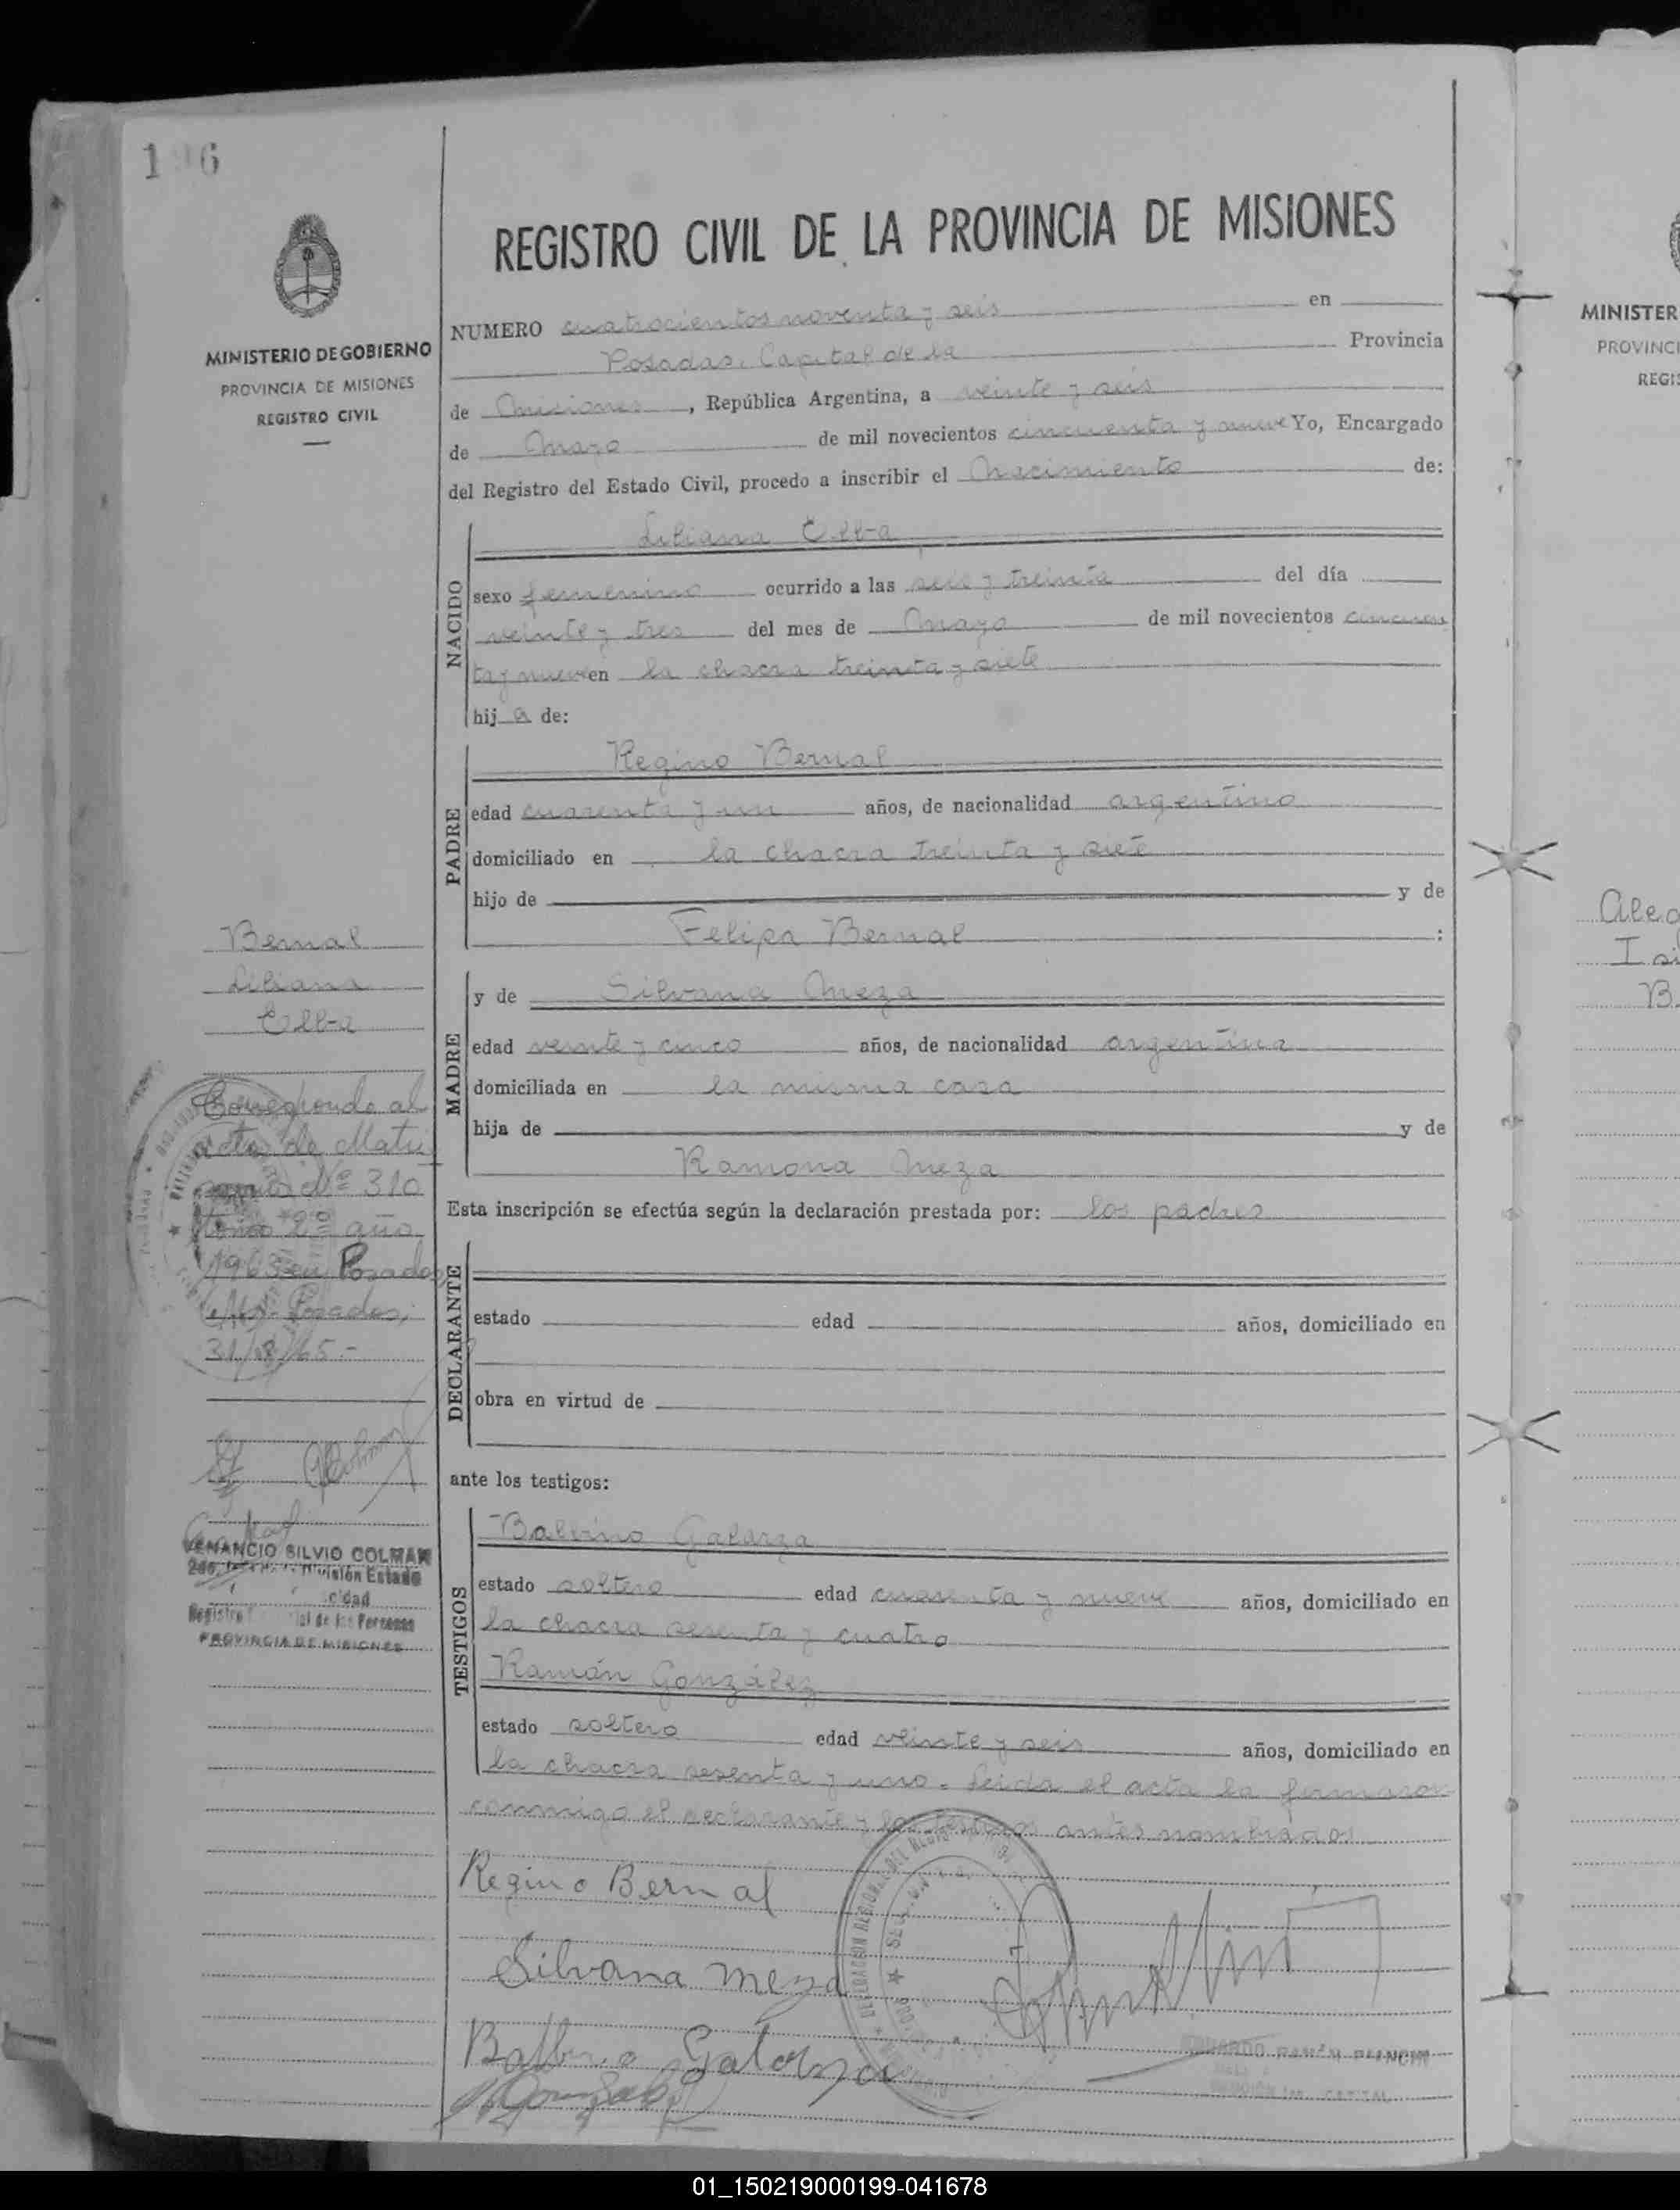 196
REGISTRO CIVIL DE LA PROVINCIA DE MISIONES
MINISTERIO DE GOBIERNO
PROVINCIA DE MISIONES
REGISTRO CIVIL
NUMERO cuatrocientos noventa y seis en
Posadas, Capital de la Provincia
de Misiones, República Argentina, a veinte y seis
de Mayo de mil novecientos cincuenta y nueve Yo, Encargado
del Registro del Estado Civil, procedo a inscribir el Nacimiento de:
NACIDO
Liliana Elba
sexo femenino ocurrido a las seis y treinta del día
veinte y tres del mes de Mayo de mil novecientos cincuen
ta y nueve en la chacra treinta y siete
hija de:
PADRE
Regino Bernal
edad cuarenta y un años, de nacionalidad argentino
domiciliado en la chacra treinta y siete
hijo de y de
Felipa Bernal :
MADRE
y de Silvana Meza
edad veinte y cinco años, de nacionalidad argentina
domiciliada en la misma casa
hija de y de
Ramona Meza
Esta inscripción se efectúa según la declaración prestada por: los padres
DECLARANTE
estado edad años, domiciliado en
obra en virtud de
ante los testigos:
TESTIGOS
Balbino Galarza
estado soltero edad cuarenta y nueve años, domiciliado en
la chacra sesenta y cuatro
Ramón González
estado soltero edad veinte y seis años, domiciliado en
la chacra sesenta y uno. Leida el acta la firmaron
conmigo el declarante y los testigos antes nombrados
Regino Bernal
Silvana Meza
Balbino Galarza
Bernal
Liliana
Elba
Corresponde al
acta de Matri
monio Nº 310
tomo 2º año
1963 en Posadas
Posadas,
31/8/65.-
VENANCIO SILVIO COLMAN
División Estado
Registro de las Personas
PROVINCIA DE MISIONES
MINISTER
PROVINCI
REGIS
01_150219000199-041678